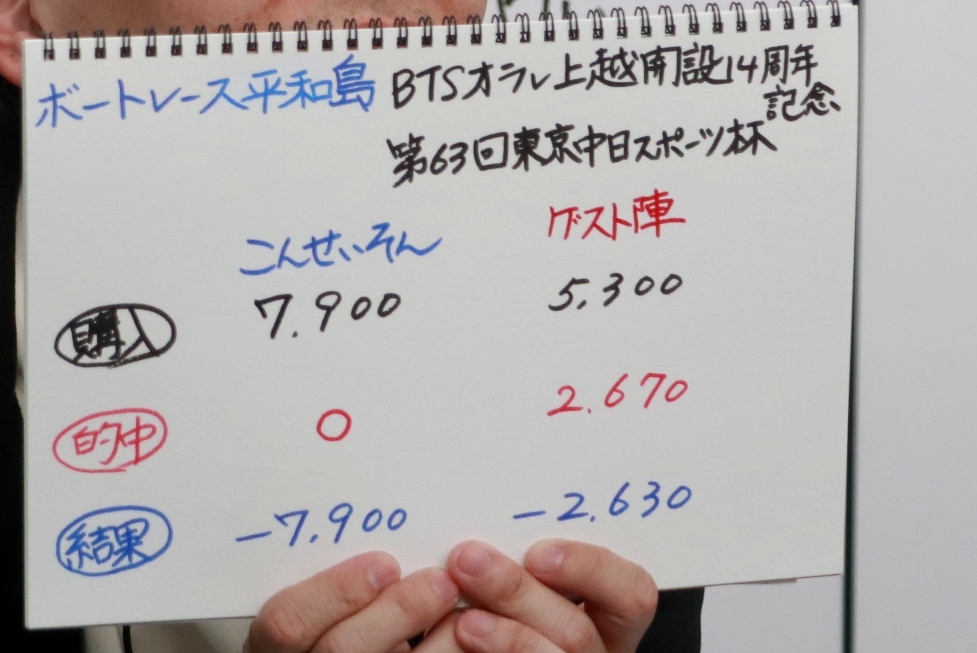 ボートレース平和島 BTSオラレ上越開設14周年
記念
第63回東京中日スポーツ杯
こんせいそん ゲスト陣
購入 7.900 5.300
的中 0 2.670
結果 -7.900 -2.630